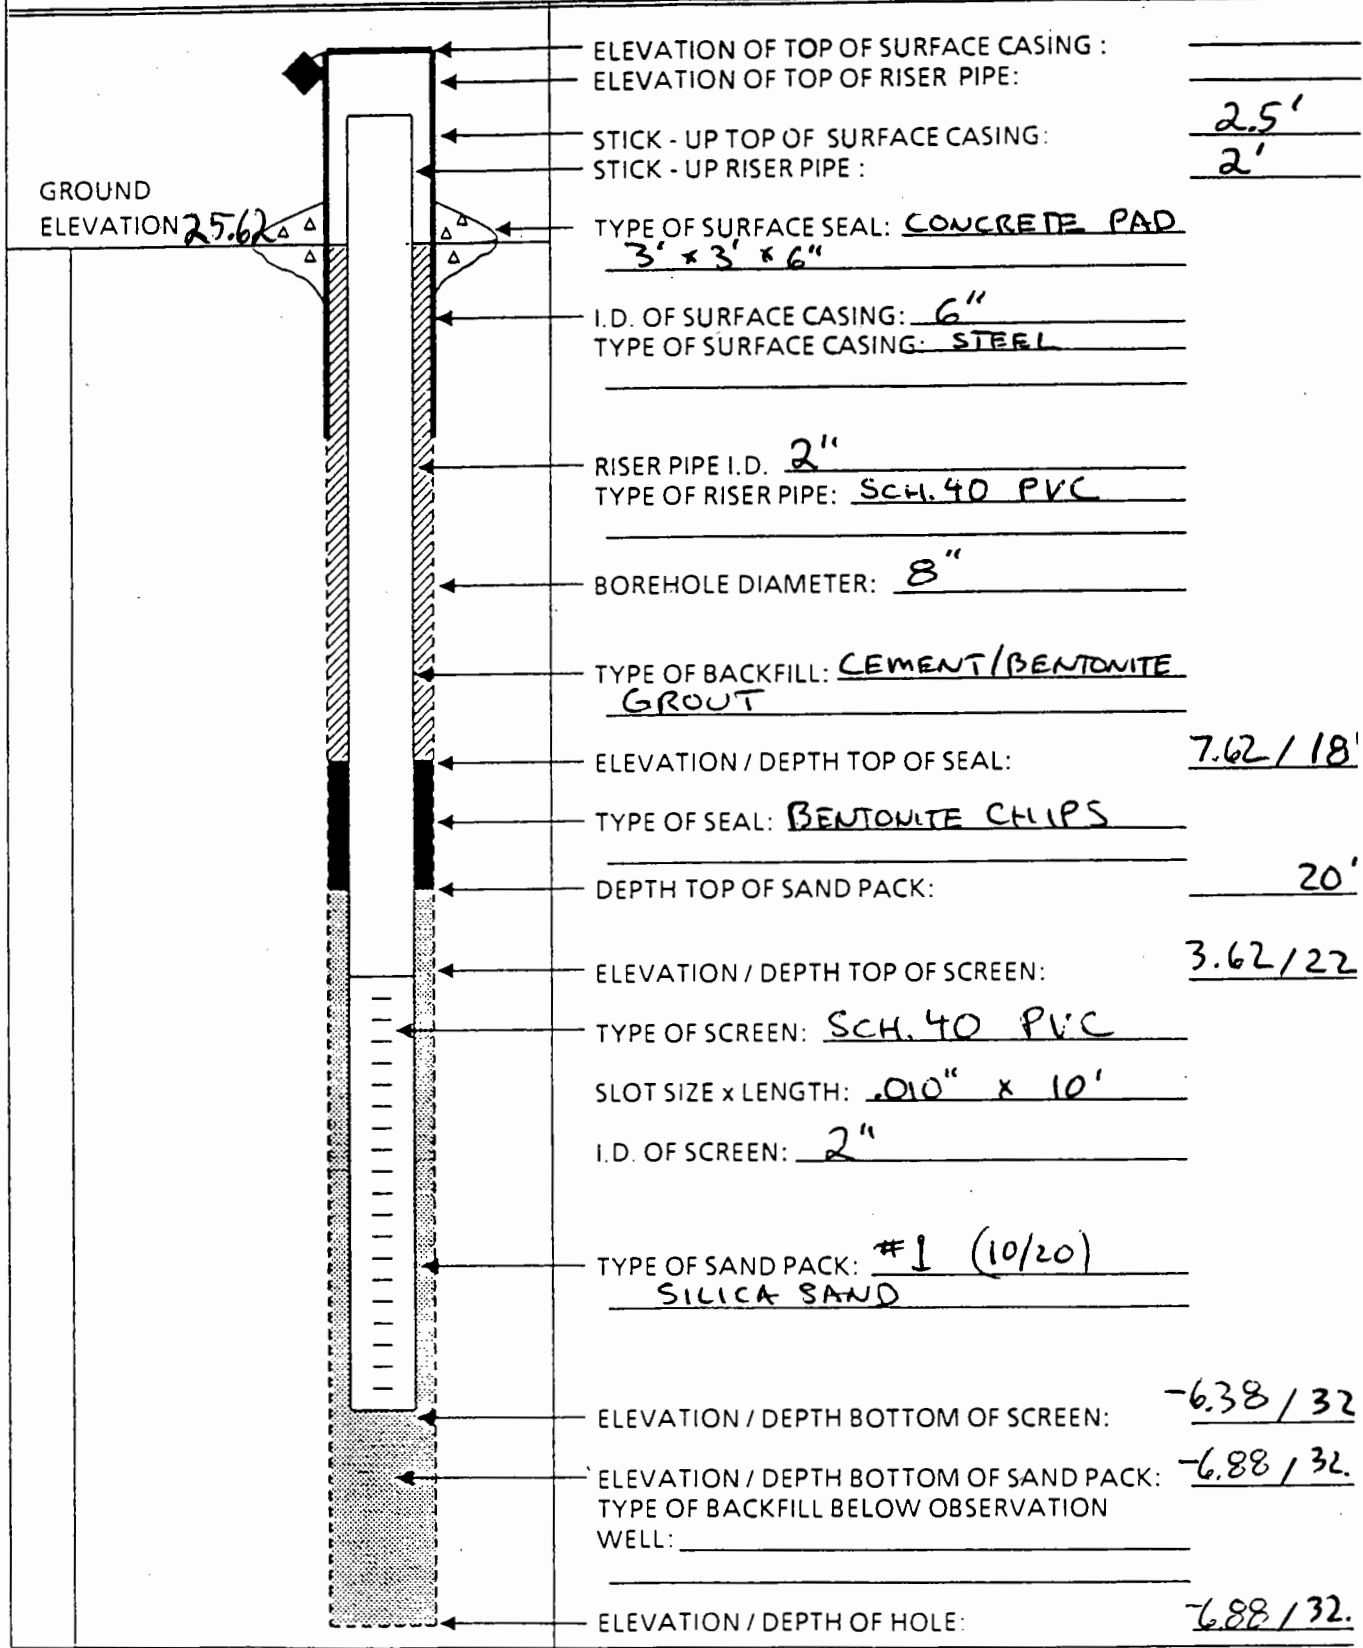 ELEVATION OF TOP OF SURFACE CASING :
ELEVATION OF TOP OF RISER PIPE:
STICK - UP TOP OF SURFACE CASING: 2.5'
STICK - UP RISER PIPE : 2'
GROUND
ELEVATION 25.62
TYPE OF SURFACE SEAL: CONCRETE PAD
3' x 3' x 6"
I.D. OF SURFACE CASING: 6"
TYPE OF SURFACE CASING: STEEL
RISER PIPE I.D. 2"
TYPE OF RISER PIPE: SCH. 40 PVC
BOREHOLE DIAMETER: 8"
TYPE OF BACKFILL: CEMENT/BENTONITE
GROUT
ELEVATION / DEPTH TOP OF SEAL: 7.62 / 18'
TYPE OF SEAL: BENTONITE CHIPS
DEPTH TOP OF SAND PACK: 20'
ELEVATION / DEPTH TOP OF SCREEN: 3.62 / 22
TYPE OF SCREEN: SCH. 40 PVC
SLOT SIZE x LENGTH: .010" x 10'
I.D. OF SCREEN: 2"
TYPE OF SAND PACK: #1 (10/20)
SILICA SAND
ELEVATION / DEPTH BOTTOM OF SCREEN: -6.38 / 32
ELEVATION / DEPTH BOTTOM OF SAND PACK: -6.88 / 32.
TYPE OF BACKFILL BELOW OBSERVATION
WELL:
ELEVATION / DEPTH OF HOLE: -6.88 / 32.